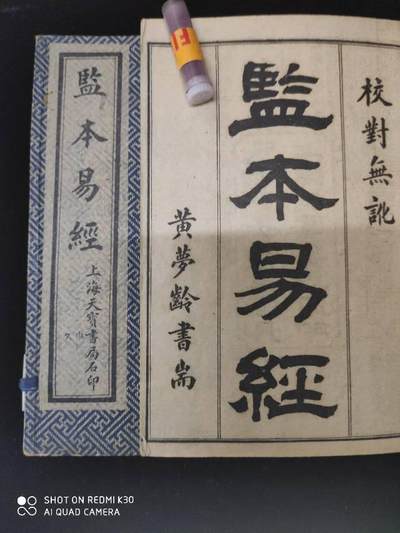 校對無訛
監本易經
黃夢齡書耑
監本易經
上海天寶書局石印
SHOT ON REDMI K30
AI QUAD CAMERA